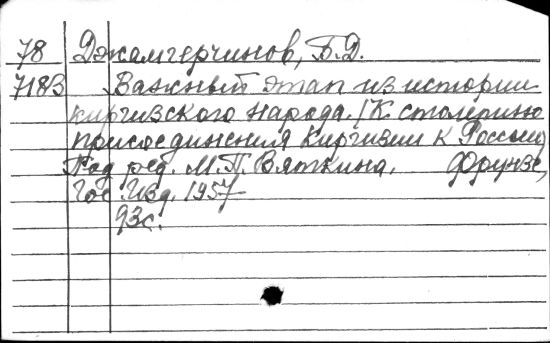 78 Джамгерчинов, Б.Д.
7183 Важный этап из истории
киргизского народа. /К столетию
присоединения Киргизии к России/
Под ред. М.П. Вяткина. Фрунзе,
Гос. Изд. 1957
93с.